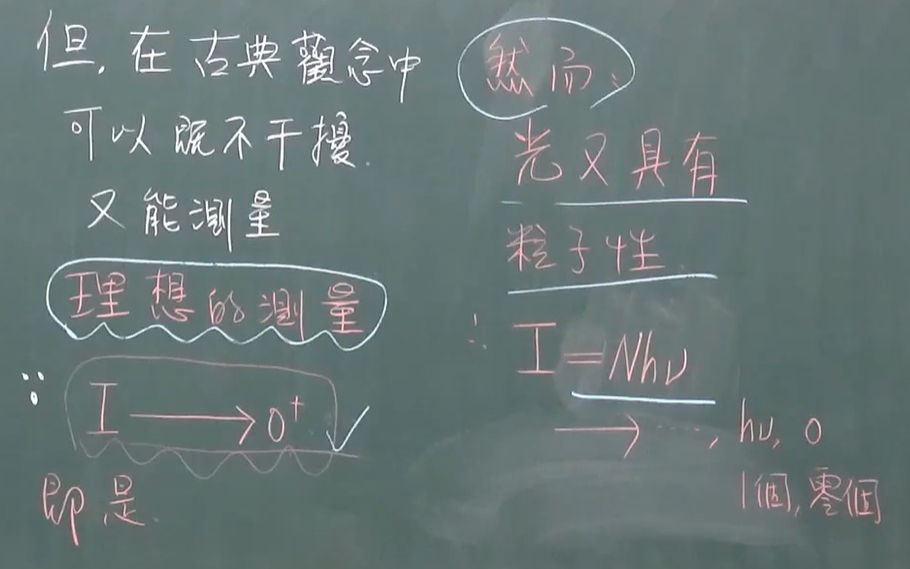 但,在古典觀念中
可以既不干擾.
又能測量
理想的測量
∵ I → 0⁺
即是.
然而:
光又具有
粒子性.
∴ I = Nhν
→ ...., hν, 0
1個,零個